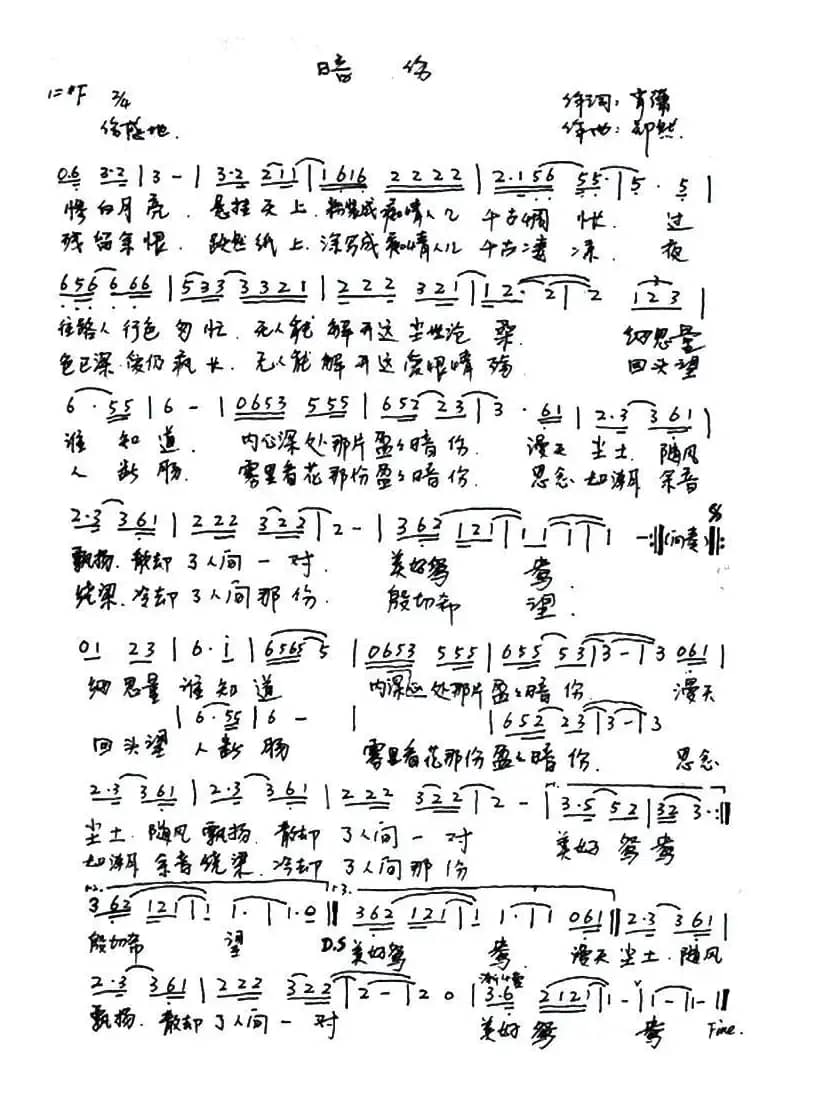 暗 伤
1=#F 2/4
作词：肖
伤感地.
作曲：郑然
0.6 3.2 | 3 - | 3.2 2 1 1 | 1 6 1 6 2 2 2 2 | 2.1 5 6 5 5. | 5 . 5 |
惨白月亮. 悬挂天上. 粉装成痴情人儿 千古惆 怅. 过
残留余恨. 跃然纸上. 涂写成痴情人儿 千古凄 凉. 夜
6 5 6 6 6 6 | 5 3 3 3 3 2 1 | 2 2 2 3 2 1 | 1 2. 2 | 2 1 2 3 |
往路人行色匆忙. 无人能解开这尘世沧 桑. 细思量
色已深. 仍疯长. 无人能解开这 恨情殇 回头望
6 . 5 5 | 6 - | 0 6 5 3 5 5 5 | 6 5 2 2 3 | 3 . 6 1 | 2.3 3 6 1 |
谁 知道. 内心深处那片盈々暗伤. 漫天 尘土. 随风
人 断肠. 雾里看花那份盈々暗伤. 思念 如潮 余音
2.3 3 6 1 | 2 2 2 3 2 2 | 2 - | 3 6 2 1 2 1 | 1 1 | 1 1 - :||(间奏)||:
飘扬. 散却了人间一对 美好鸳 鸯.
绕梁. 冷却了人间那份. 殷切希 望.
0 1 2 3 | 6 . i | 6 5 6 5 5 | 0 6 5 3 5 5 5 | 6 5 5 5 3 | 3 - | 3 0 6 1 |
细思量 谁知道 内深心处那片盈々暗伤. 漫天
| 6 . 5 5 | 6 - | | 6 5 2 2 3 | 3 - | 3
回头望 人断肠 雾里看花那份盈々暗伤. 思念
2.3 3 6 1 | 2.3 3 6 1 | 2 2 2 3 2 2 | 2 - | 3.5 5 2 | 3 2 3 . :||
尘土. 随风飘扬. 散却了人间一对 美好鸳鸯
如潮 余音绕梁. 冷却了人间那份
3 6 2 1 2 1 | 1 1. | 1. 0 || 3 6 2 1 2 1 | 1 1 . | 1 0 6 1 || 2.3 3 6 1 |
殷切希 望 D.S 美好鸳 鸯. 漫天尘土. 随风
渐慢
2.3 3 6 1 | 2 2 2 3 2 2 | 2 - | 2 0 | 3.6 2 1 2 1 | 1 - | 1 - | 1 - ||
飘扬. 散却了人间一对 美好鸳 鸯 Fine.